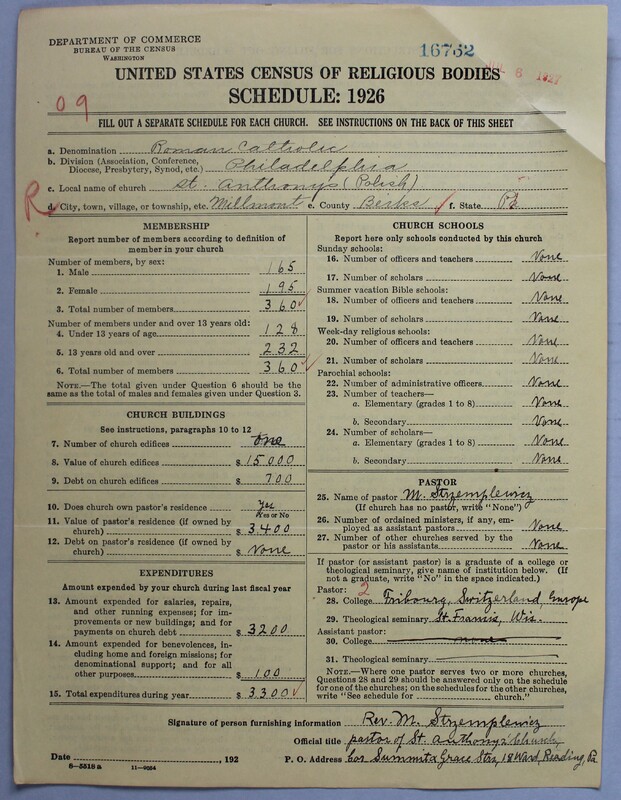 DEPARTMENT OF COMMERCE
BUREAU OF THE CENSUS
WASHINGTON
16752
JUL 6 1927
UNITED STATES CENSUS OF RELIGIOUS BODIES
SCHEDULE: 1926
09
FILL OUT A SEPARATE SCHEDULE FOR EACH CHURCH. SEE INSTRUCTIONS ON THE BACK OF THIS SHEET
a. Denomination Roman Catholic
b. Division (Association, Conference, Diocese, Presbytery, Synod, etc.) Philadelphia
c. Local name of church St. Anthonys (Polish)
R d. City, town, village, or township, etc. Millmont e. County Berks f. State Pa
MEMBERSHIP
Report number of members according to definition of member in your church
Number of members, by sex:
1. Male 165
2. Female 195
3. Total number of members 360
Number of members under and over 13 years old:
4. Under 13 years of age 128
5. 13 years old and over 232
6. Total number of members 360
NOTE.—The total given under Question 6 should be the same as the total of males and females given under Question 3.
CHURCH BUILDINGS
See instructions, paragraphs 10 to 12
7. Number of church edifices One
8. Value of church edifices $ 15000
9. Debt on church edifices $ 700
10. Does church own pastor's residence Yes
Yes or No
11. Value of pastor's residence (if owned by church) $ 3400
12. Debt on pastor's residence (if owned by church) $ None
EXPENDITURES
Amount expended by your church during last fiscal year
13. Amount expended for salaries, repairs, and other running expenses; for improvements or new buildings; and for payments on church debt $ 3200
14. Amount expended for benevolences, including home and foreign missions; for denominational support; and for all other purposes $ 100
15. Total expenditures during year $ 3300
CHURCH SCHOOLS
Report here only schools conducted by this church
Sunday schools:
16. Number of officers and teachers None
17. Number of scholars None
Summer vacation Bible schools:
18. Number of officers and teachers None
19. Number of scholars None
Week-day religious schools:
20. Number of officers and teachers None
21. Number of scholars None
Parochial schools:
22. Number of administrative officers None
23. Number of teachers—
a. Elementary (grades 1 to 8) None
b. Secondary None
24. Number of scholars—
a. Elementary (grades 1 to 8) None
b. Secondary None
PASTOR
25. Name of pastor M. Strzemplewicz
(If church has no pastor, write "None")
26. Number of ordained ministers, if any, employed as assistant pastors None
27. Number of other churches served by the pastor or his assistants None
If pastor (or assistant pastor) is a graduate of a college or theological seminary, give name of institution below. (If not a graduate, write "No" in the space indicated.)
Pastor: 2
28. College Fribourg, Switzerland, Europe
29. Theological seminary St. Francis, Wis.
Assistant pastor:
30. College none
31. Theological seminary
NOTE.—Where one pastor serves two or more churches, Questions 28 and 29 should be answered only on the schedule for one of the churches; on the schedules for the other churches, write "See schedule for church."
Signature of person furnishing information Rev. M. Strzemplewicz
Official title pastor of St. Anthony's Church,
Date , 192 P. O. Address cor Summit & Grace Strs, 18 Ward, Reading, Pa
8—5518 a 11—9554